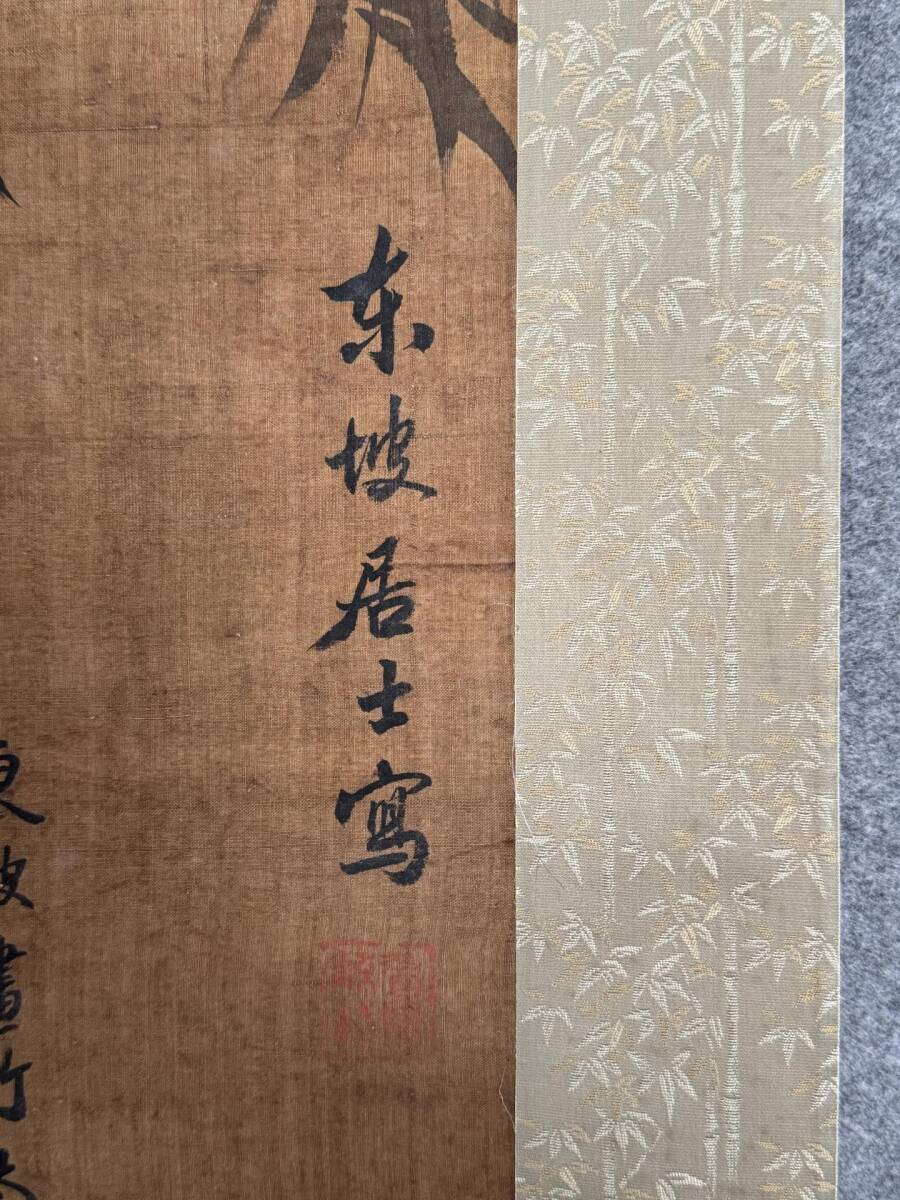 东坡居士写
東坡畫竹